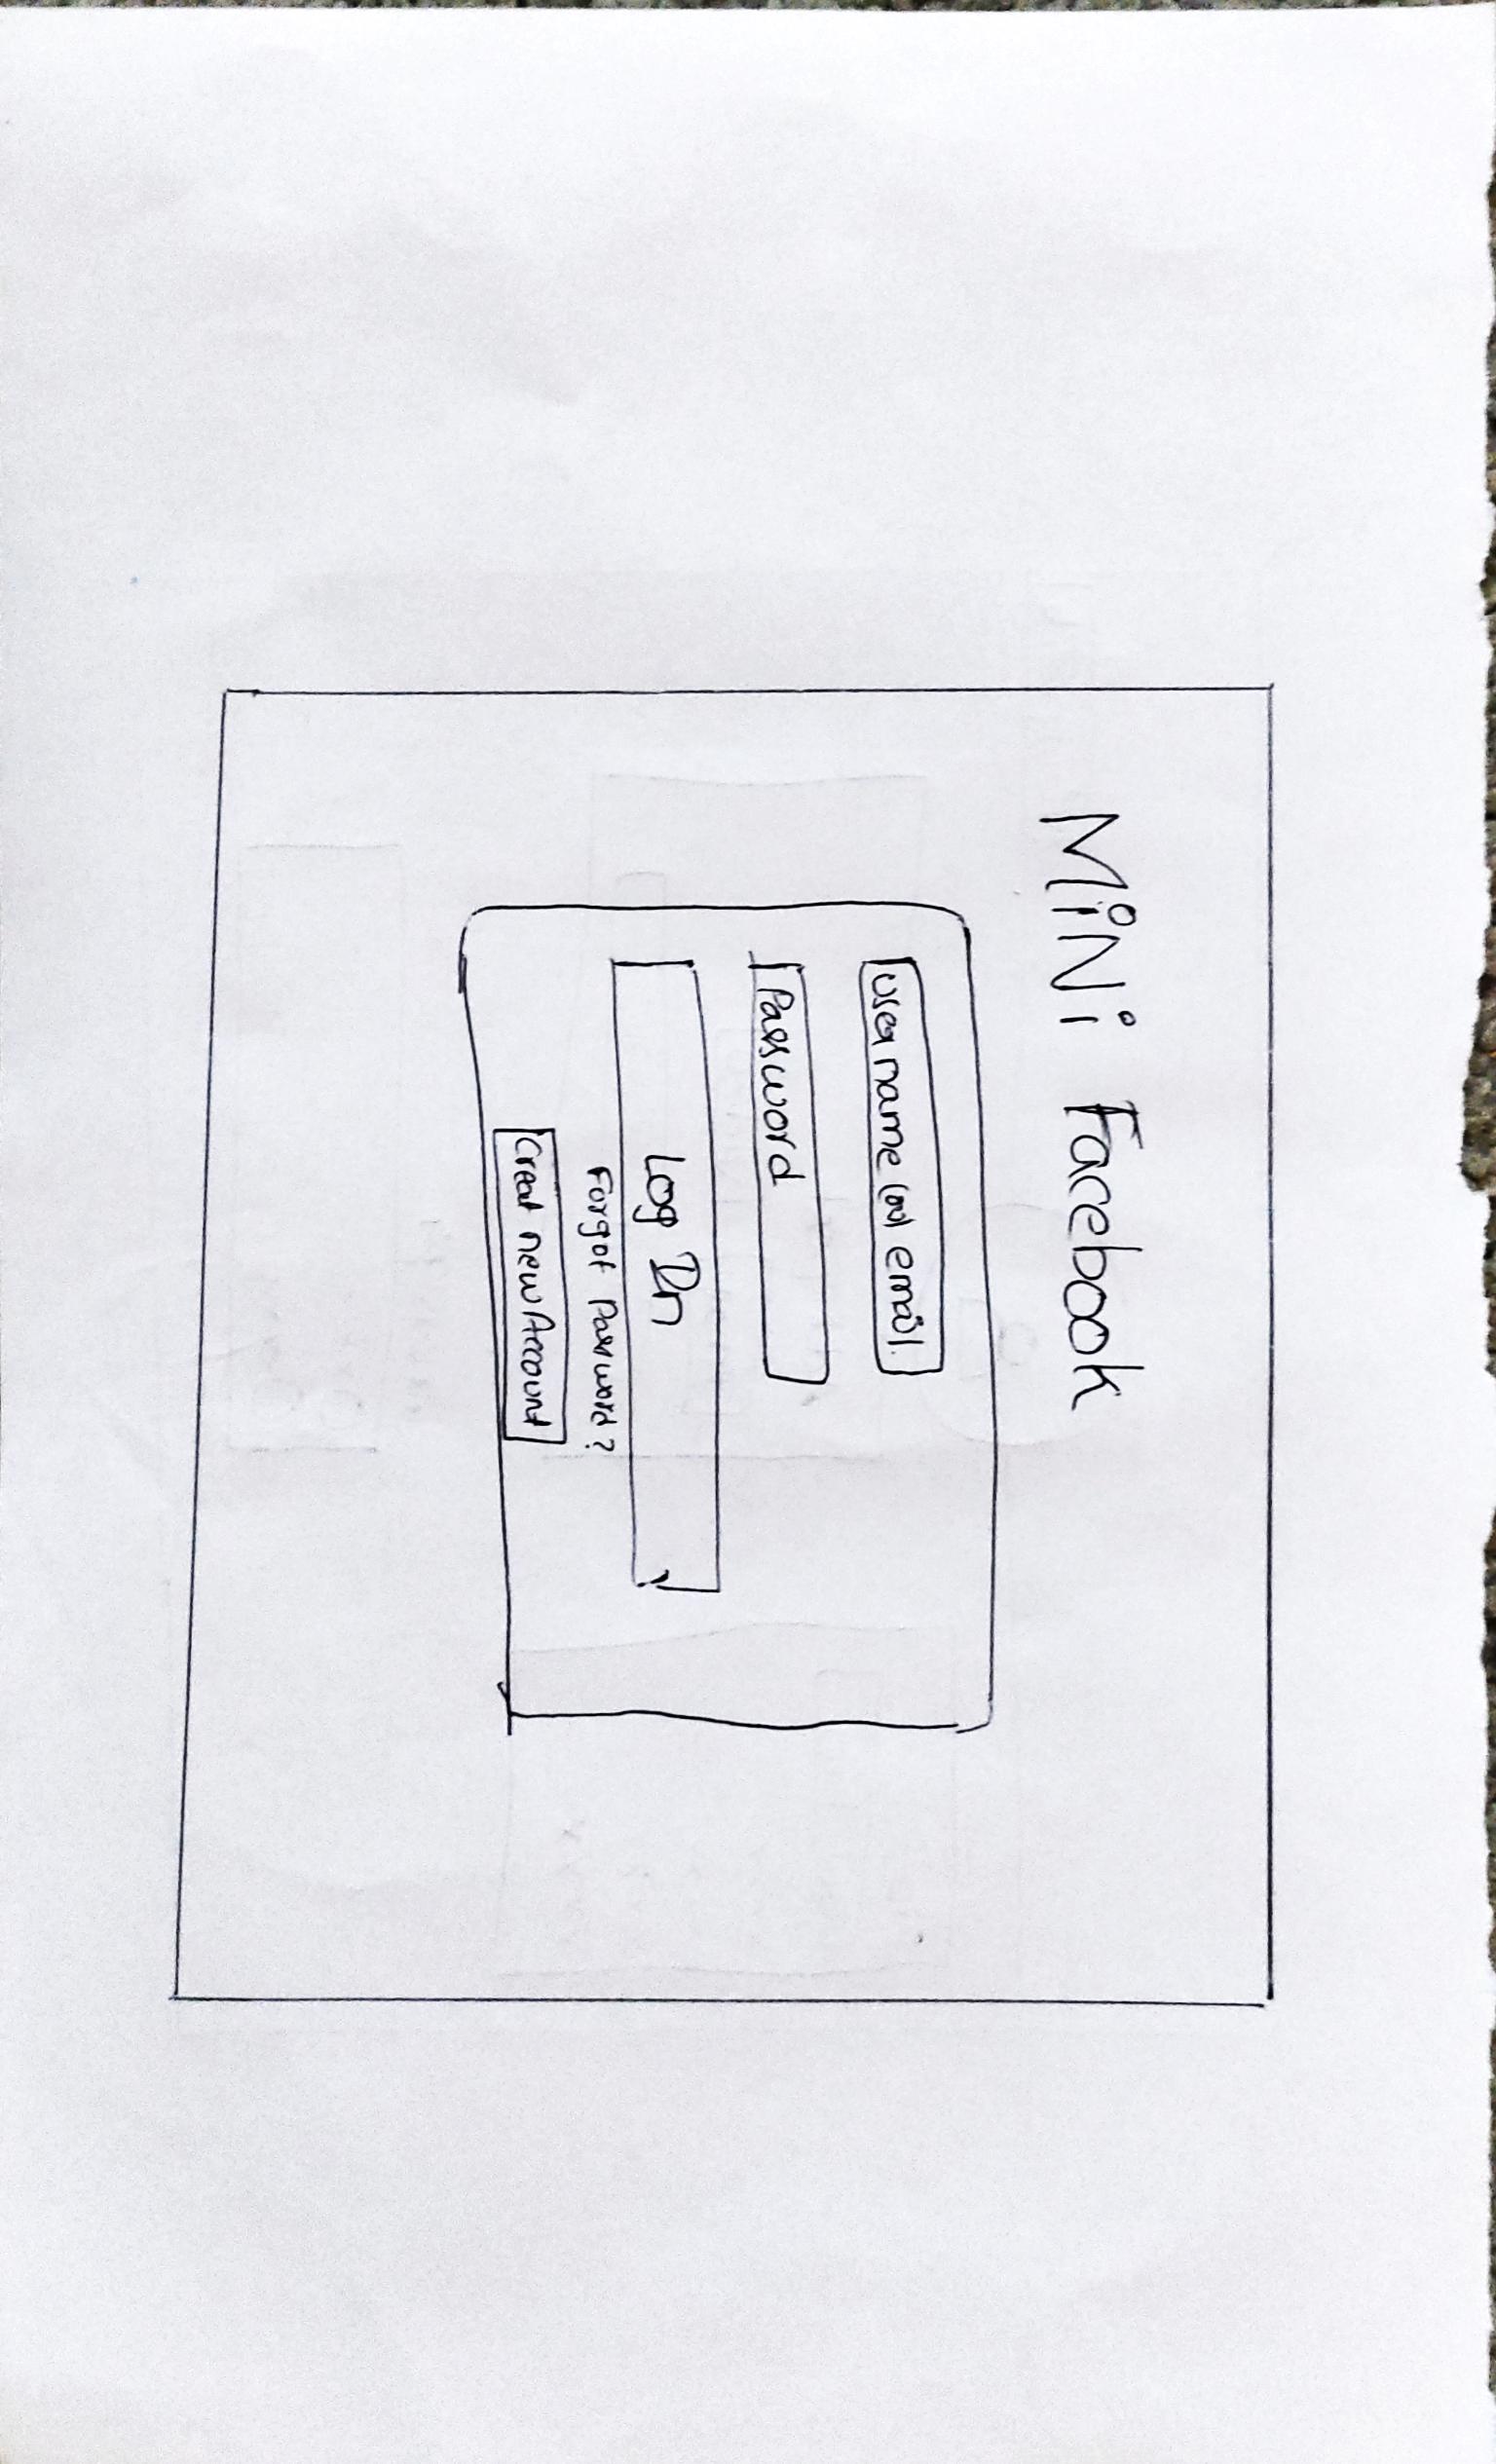 MiNi Facebook
Username (or) email.
Password
Log In
Forgot Password?
Creat new Account